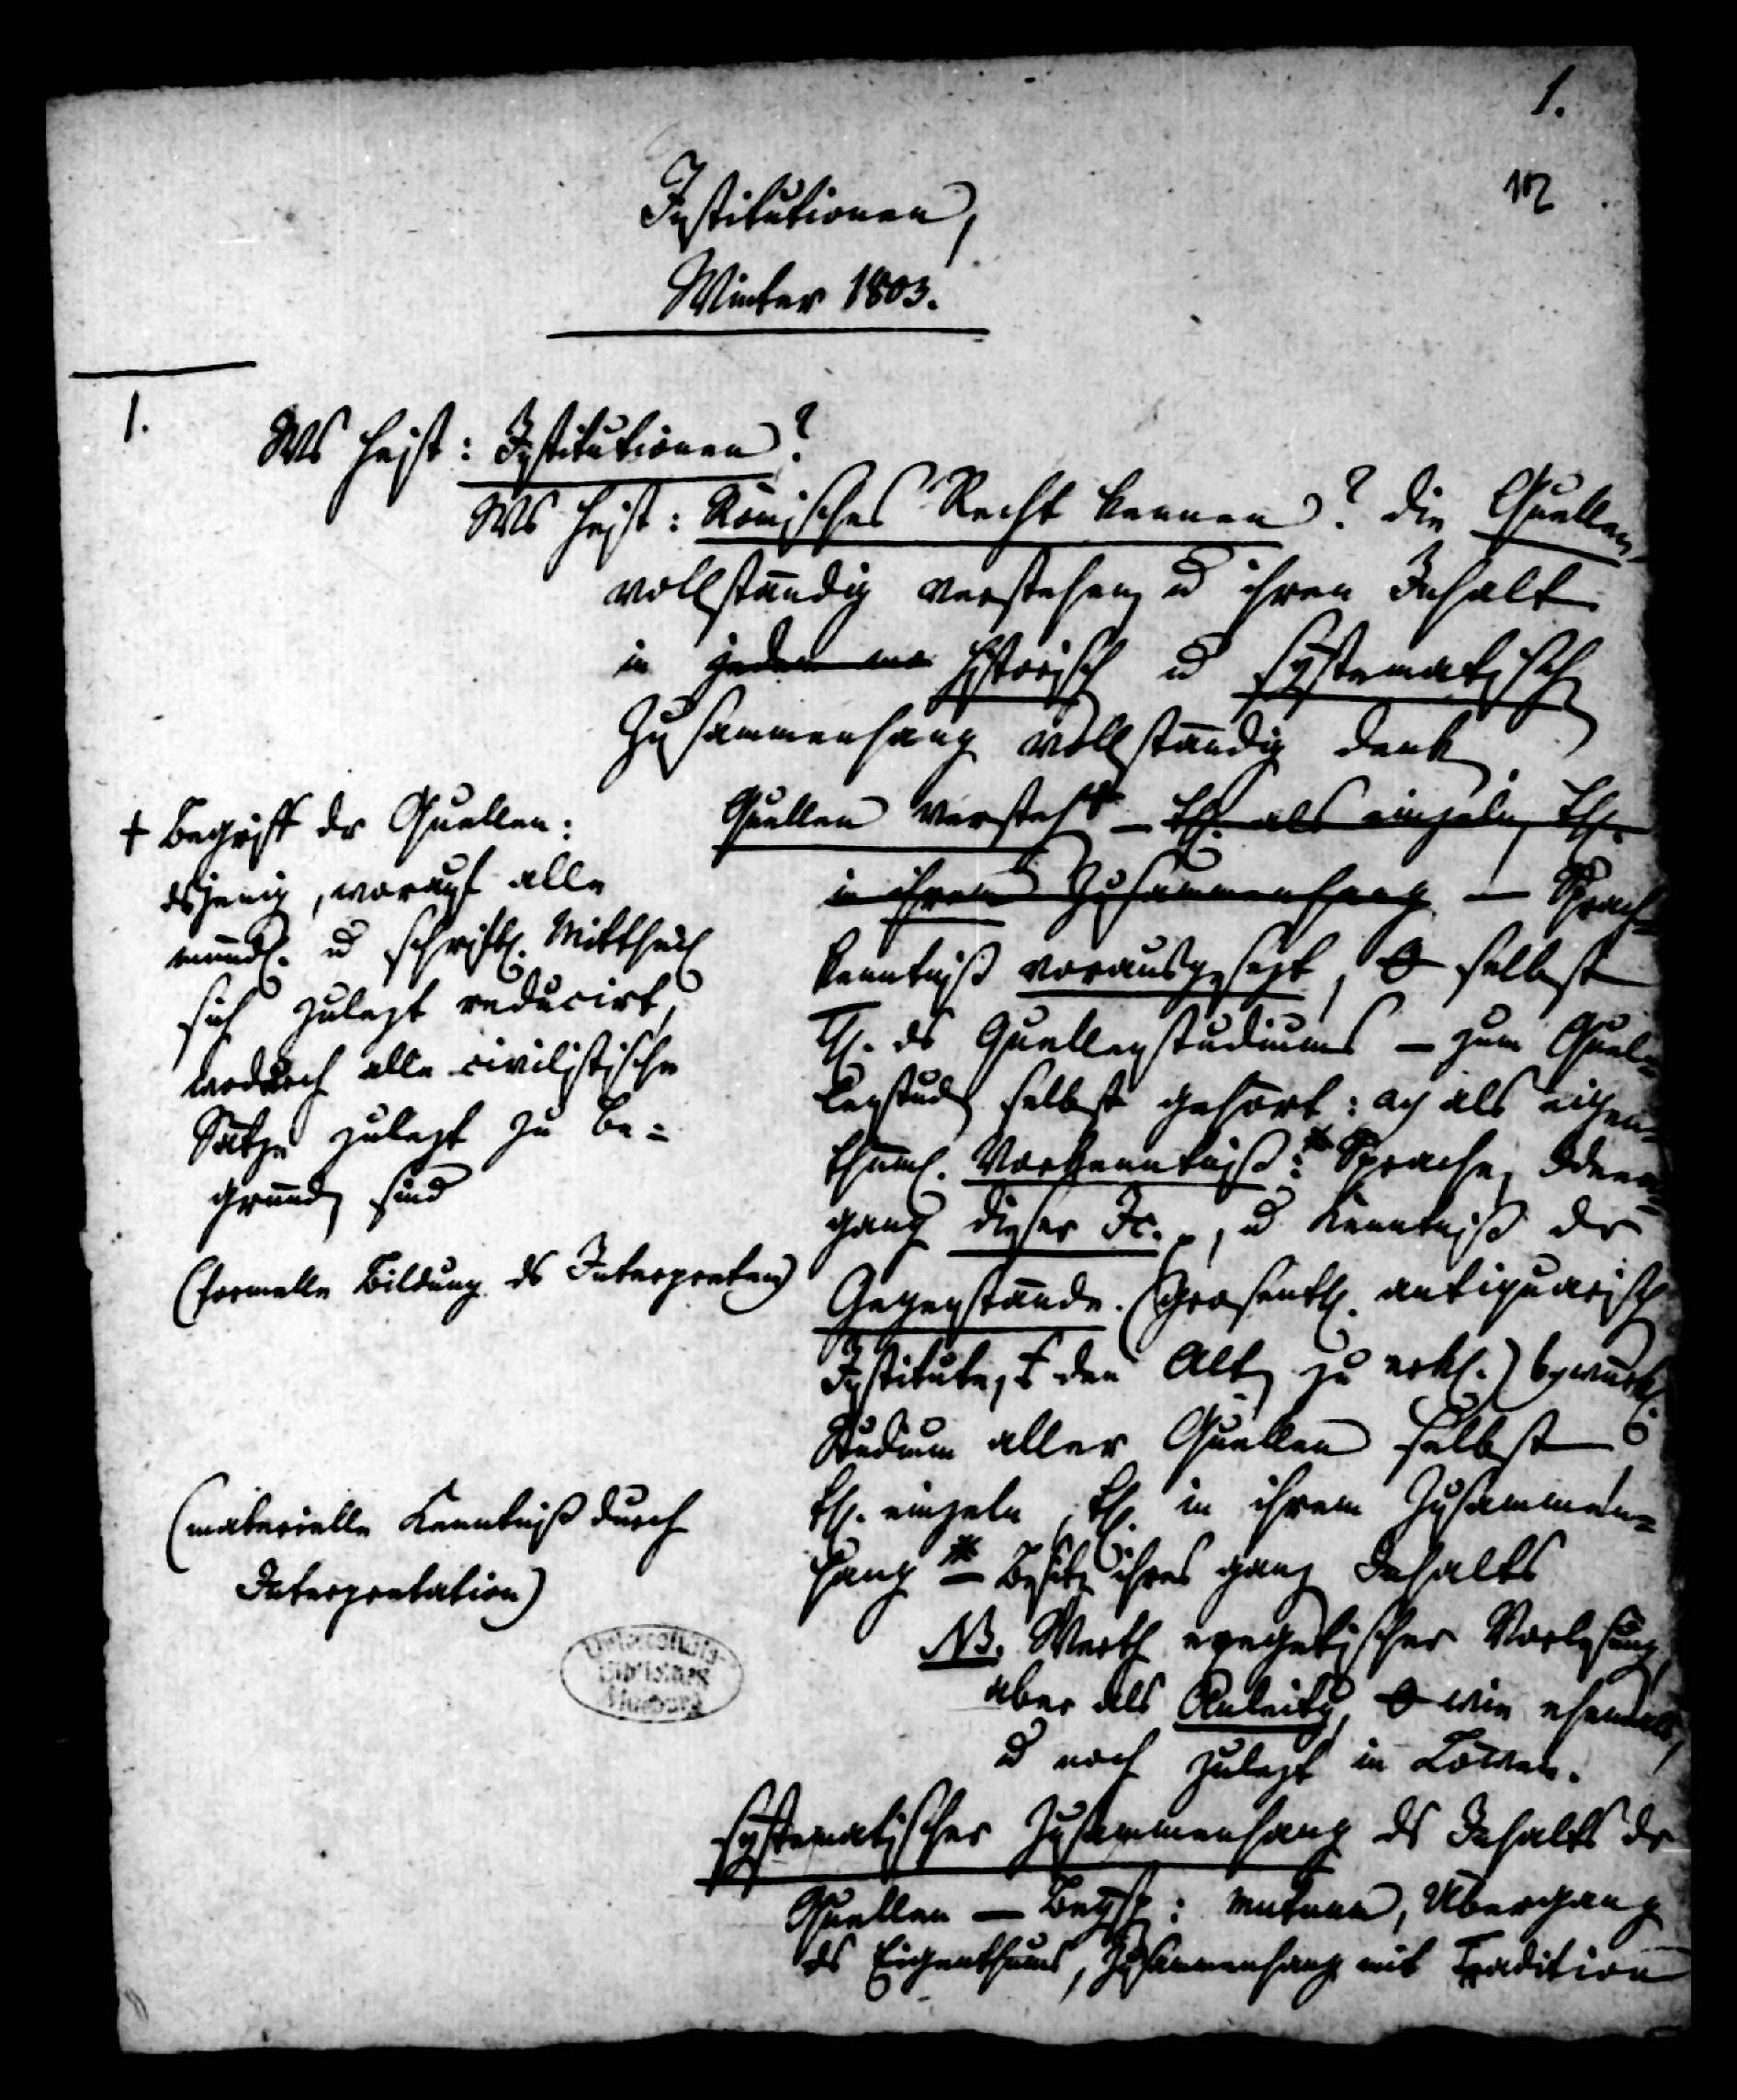 1.
Institutionen,
Winter 1803.
1.
Ws heist: Institutionen?
Ws heist: Römisches Recht kennen? die Quellen
vollständig verstehen, u ihren Inhalt
in jeden historisch u systematisch
Zusammenhang vollständig denk.
Quellen versteh – th. als einzeln, th.
in ihrem Zusammenhang – Sprach-
kenntniß vorausgesezt, selbst
Th. ds Quellenstudiums – zum Quel-
lenstud selbst gehört: als eigen-
thüml. Vorkenntniß: Sprache, Ideen-
gang dieser Jc., u Kenntniß dr
Gegenstände. (grosentl. antiquarisch
Institute, den Alt zu erkl.)
Studium aller Quellen selbst
th. einzeln, th. in ihrem Zusammen-
hang * – Besitz ihres ganz Inhalts
NB. Werth exegetischer Vorlesung,
aber als Anleitg, wie ehemals,
u noch zulezt in Löwen.
systematischer Zusammenhang ds Inhalts dr
Quellen – Beysp: mutuum, Übergang
ds Eigenthums, Zusammenhang mit Tradition
+ Begriff dr Quellen:
dsjenig, worauf alle
mündl. u schriftl. Mittheil
sich zulezt reducirt,
wodurch alle civilistische
Sätze zulezt zu be-
gründ sind
(formelle Bildung ds Interpreten)
(materielle Kenntniß durch
Interpretation)
Universitäts-
Bibliothek
Marburg